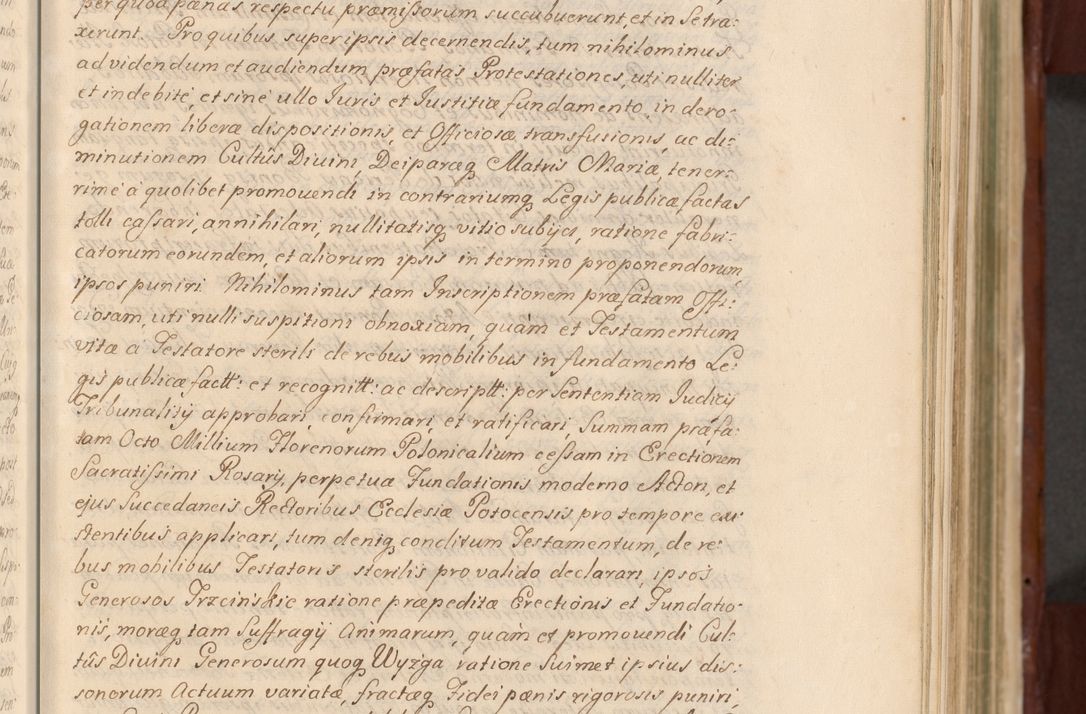 per quod pænas respectu præmissorum succubuerunt, et in se tra:
xerunt. Pro quibus super ipsis decernendis, tum nihilominus
ad videndum et audiendum præfatas Protestationes, uti nulliter
et indebitè, et sine ullo Iuris et Iustitiæ fundamento, in dero:
gationem liberæ dispositionis, et Officiosæ transfusionis, ac di:
minutionem Cultûs Divini, Deiparæq Matris Mariæ, tener:
rime à quolibet promovendi in contrariumq Legis publicæ, factas
tolli cassari, annihilari, nullitatisq vitio subijci, ratione fabri:
catorum eorundem, et aliorum ipsis in termino proponendorum
ipsos puniri. Nihilominus tam Inscriptionem præfatam Offi:
ciosam, uti nulli suspitioni obnoxiam, quàm et Testamentum
vitæ a Testatore sterili de rebus mobilibus in fundamento Le:
gis publicæ factt: et recognitt: ac descriptt: per Sententiam Iudicij
Tribunalitij approbari, confirmari, et ratificari, Summam præfa:
tam Octo Millium Florenorum Polonicalium cessam in Erectionem
Sacratissimi Rosarij, perpetuæ Fundationis moderno Actori, et
ejus Succedaneis Rectoribus Ecclesiæ Potocensis pro tempore exi
stentibus applicari, tum deniq conditum Testamentum, de re:
bus mobilibus Testatoris sterilis pro valido declarari, ipsos
Generosos Trzcinskie ratione præpeditæ Erectionis et Fundatio:
nis, moræq tam Suffragij Animarum, quàm et promovendi Cul:
tûs Divini Generosum quoq Wyżga ratione Suimet ipsius dis:
sonorum Actuum variatæ, fractæq Fidei pænis rigorosis puniri,